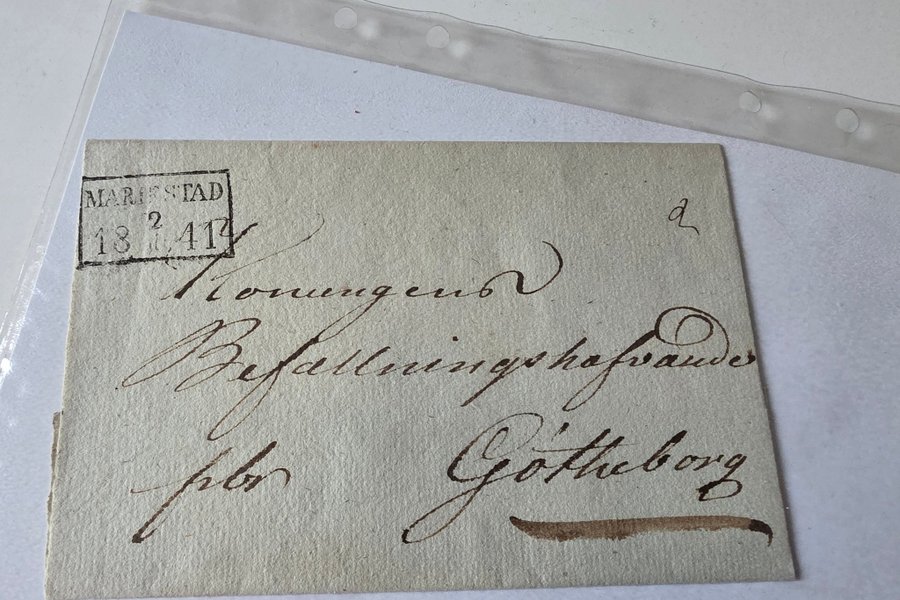 MARIESTAD
2
18 41
Konungens
Befallningshafvande
Götheborg